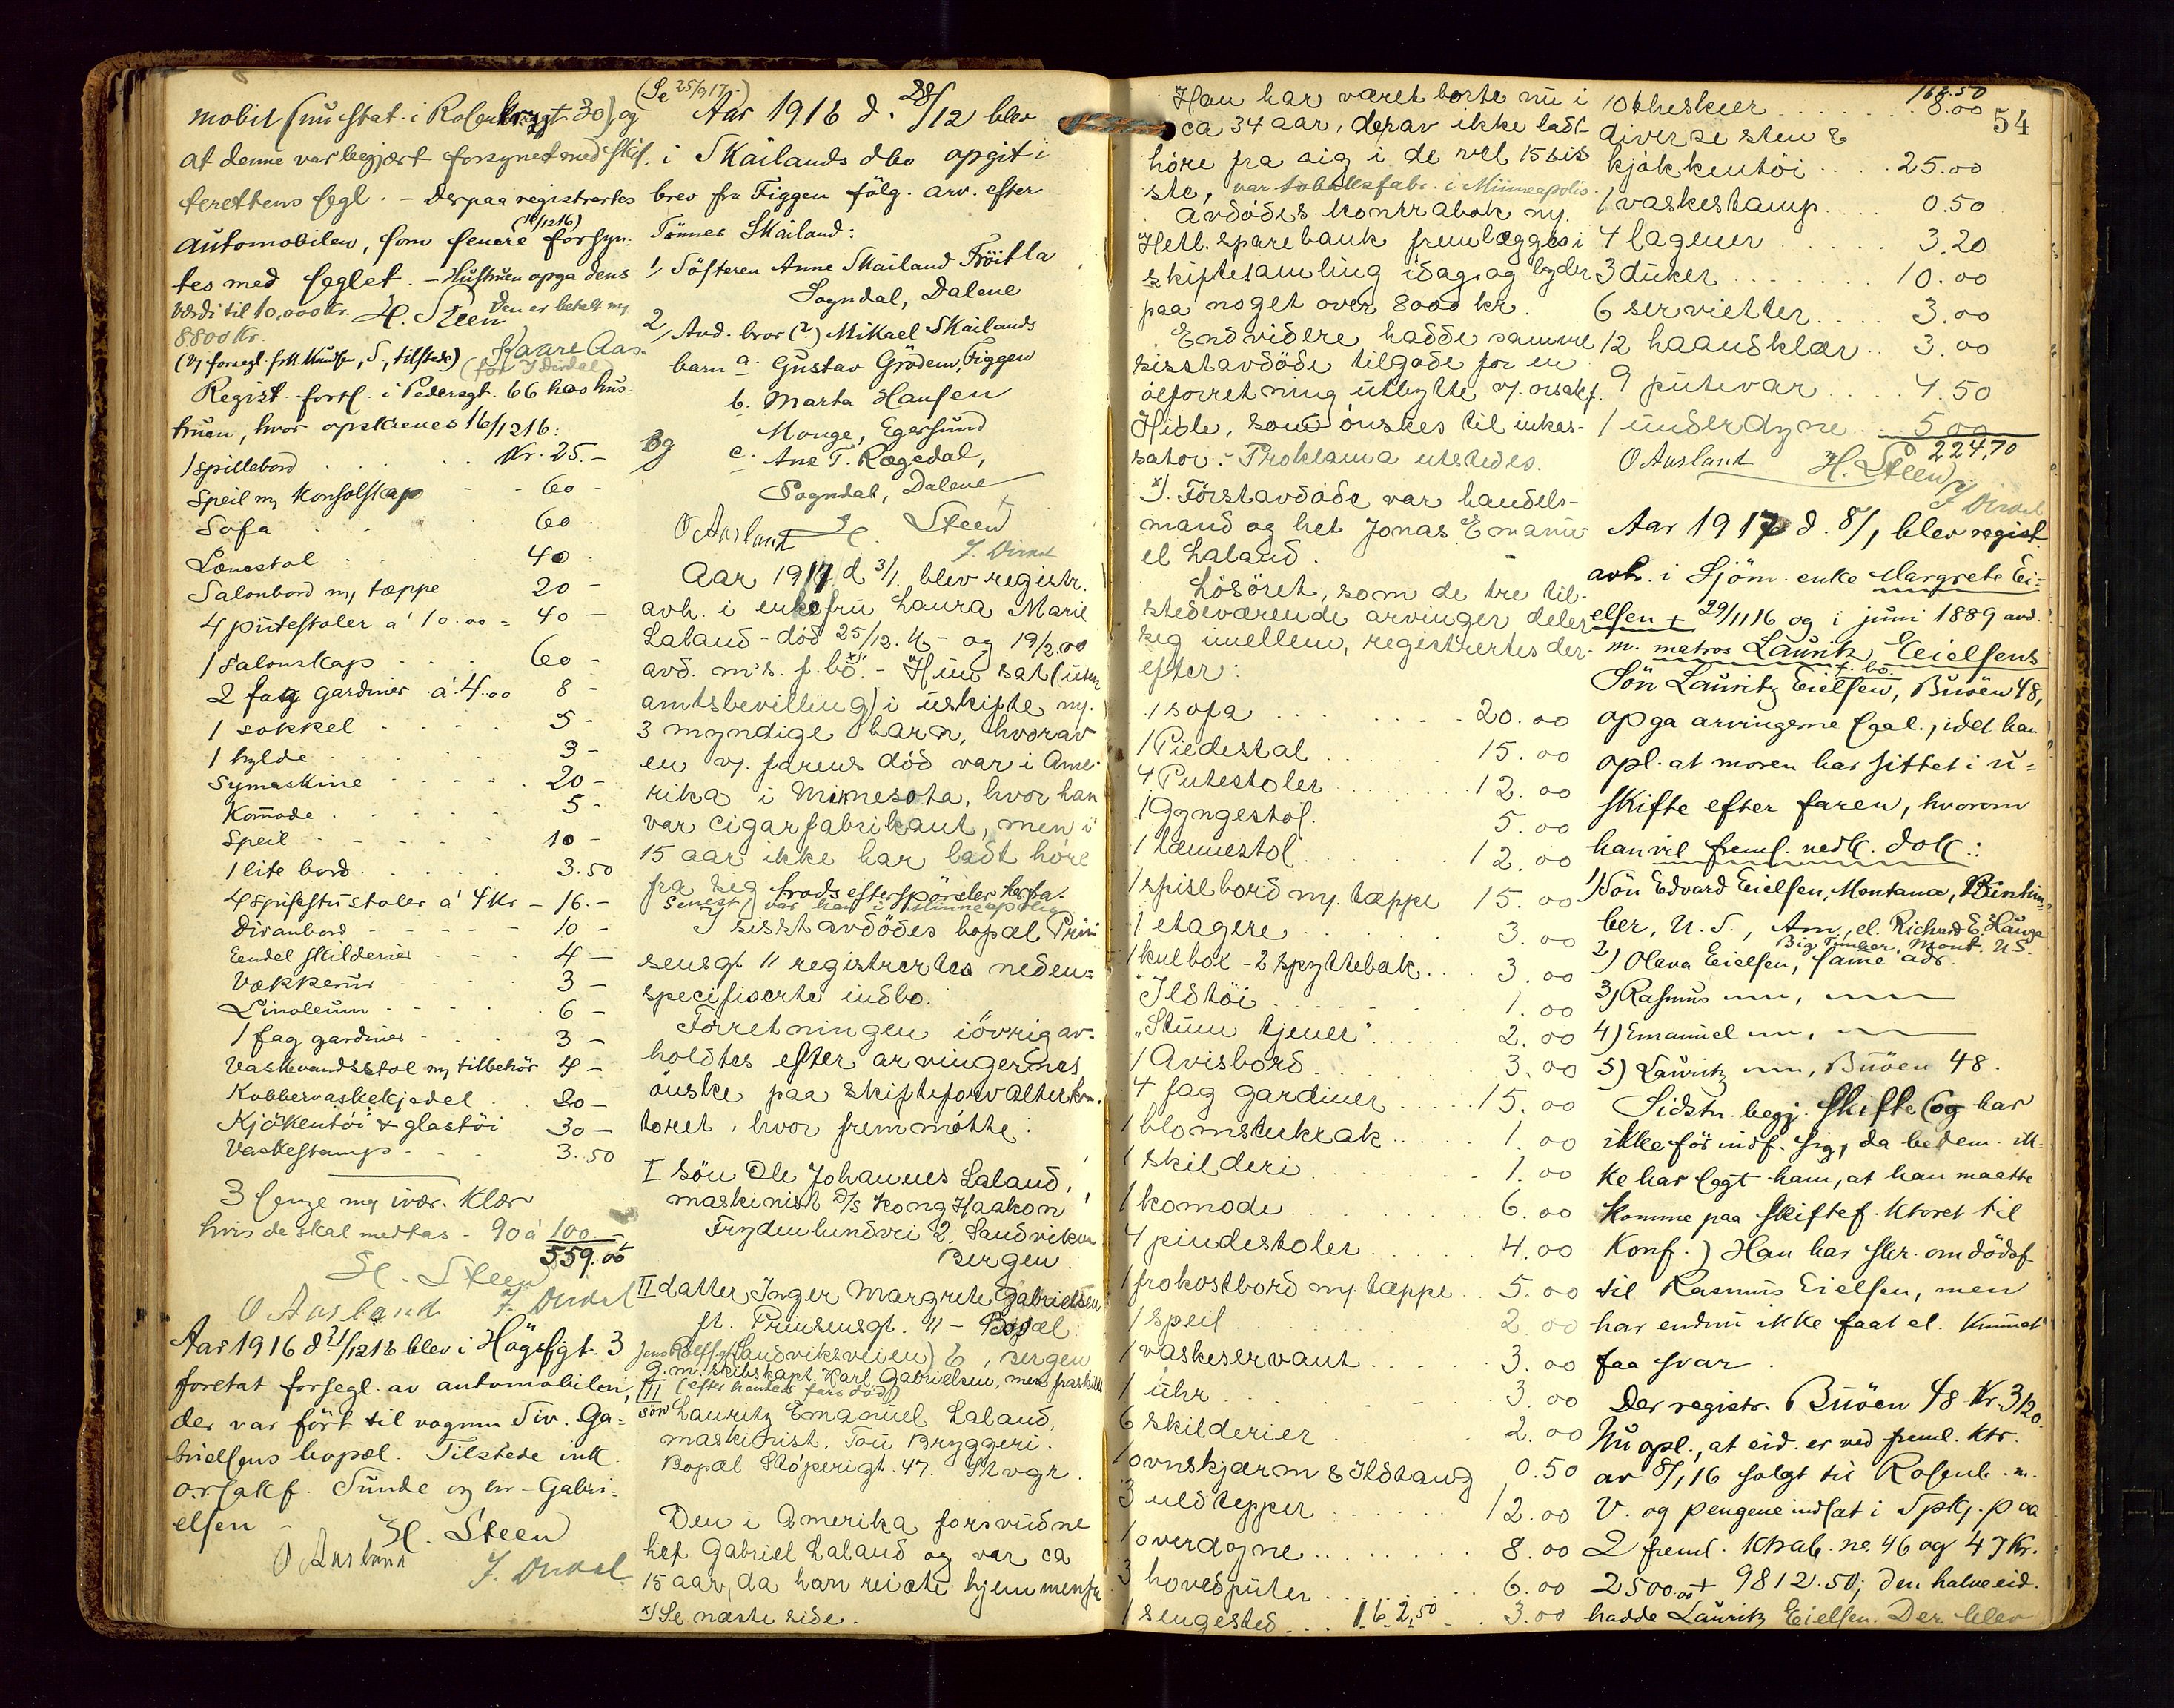 mobil (nu stat. i Rosenkrzgt. 30) og
at denne var begjært forsynet med skif:
terettens segl. - Derpaa registrertes
(16/12 16)
automobilen, som senere forsyn:
tes med seglet. - Hustruen opga dens
værdi til 10,000 kr. H. Steen Den er betalt m/
8800 kr.
Kaare Aas.
(V/ forsegl. frk. Knudsen, S, tilstede) (for J Dirdal)
Regist. forts. i Pedersgt. 66 hos hus-
truen, hvor opskrenes 16/12 16:
1 spillebord Kr. 25.-
Speil m/ Konsolskap 60 -
Sofa 60.
Lænestol 40.
Salonbord m/ tæppe 20 -
4 putestoler a' 10.00 = 40 -
1 salonskap 60 -
2 fag gardiner a' 4.00 8 -
1 sokkel 5 -
1 hylde 3 -
Symaskine 20 -
Komode 5 -
Speil 10 -
1 lite bord 3.50
4 spisestustoler a' 4 Kr - 16.-
Divanbord 10 -
Eendel skilderier 4 -
Vækkerur 3 -
Linoleum 6 -
1 fag gardiner 3 -
Vaskevandsstol m/ tilbehör 4 -
Kobbervaskekjedel 20 -
Kjökentöi & glastöi 30 -
Vaskestamp 3.50
3 senge m/ ivær. Klær
hvis de skal medtas - 90 a' 100.-
559.00
H. Steen
O Ausland J. Dirdal
Aar 1916 d. 21/12 16 blev i Högsfgt. 3
foretat forsegl. av automobilen,
der var fört til vognm Siv. Ga=
brielsens bopæl. Tilstede ink.
o.r.sakf. Tunde og hr Gabri-
elsen -
H. Steen
O Ausland J. Dirdal
(Se 25/9 17.)
Aar 1916 d. 28/12 blev
i Skailands dbo opgit i
brev fra Figgen fölg. arv. efter
Tönnes Skailand:
1/ Söfteren Anne Skailand Fröitla
Sogndal, Dalene
2/ Avd. bror (?) Mikael Skailands
barn a. Gustav Grödem, Figgen
b. Marta Hansen
Monge, Egersund
og c. Ane T. Rægedal,
Sogndal, Dalene
O Ausland H. Steen
J. Dirdal
Aar 1917 d 3/1. blev registr.
avh. i enkefru Laura Marie
Laland - död 25/12. 16 - og 19/2.00
avd. m's. f. bo. x) - Hun sat (uten
amtsbevilling) i uskifte m/
3 myndige barn, hvorav
en v/ farens död var i Ame-
rika i Minnesota, hvor han
var cigarfabrikant, men i
15 aar ikke har ladt höre
fra sig trods efterspörsler herfra.
Senest var han i Minneapolis
I sisstavdödes bopæl Prin
sensgt. 11 registrertes neden=
specifiserte indbo.
Forretningen iövrig av-
holdtes efter arvingernes
önske paa skifteforvalterkon.
toret, hvor fremmötte:
I sön Ole Johannes Laland,
maskinist D/s Kong Haakon
Frydenlundvei 2. Sandviken
Bergen.
II datter Inger Margrete Gabrielsen
ft. Prinsensgt. 11 - Bopæl
Sandviksveien) 6, Bergen
g.m. skibskapt. Karl Gabrielsen, men fraskilt
III (efter hendes fars död)
sön Lauritz Emanuel Laland,
maskinist. Tou Bryggeri.
Bopæl Stöperigt. 47. Stvgr.
Den i Amerika forsvundne
het Gabriel Laland og var ca
15 aar, da han reiste hjemmenfra
x) Se næste side.
54
Han har været borte nu i
ca 34 aar, derav ikke ladt
höre fra sig i de vel 15 sis
ste, var tobaksfabr. i Minneapolis.
Avdödes Kontrabok m/
Hetl. sparebank fremlægges i
skiftesamling idag og lyder
paa noget over 8000 kr.
Endvidere hadde samme
sisstavdöde tilgode for en
ölforretning utbytte v/ orsakf.
Hidle, som önskes til inkas-
sator. - Proklama utstedes.
x). Förstavdöde var handels-
mand og het Jonas Emanu
el Laland.
Lösöret, som de tre til-
stedeværende arvinger deler
seg imellem, registrertes der-
efter:
1 sofa 20.00
1 Piedestal 15.00
4 Putestoler 12.00
1 Gyngestol. 5.00
1 lænestol 12.00
1 spisebord m/ tæppe 15.00
1 etagere 3.00
1 kulbox - 2 spyttebak. 3.00
Ildtöi 1.00
"Stum tjener" 2.00
1 Avisbord 3.00
4 fag gardiner 15.00
1 blomsterkrak 1.00
1 skilderi 1.00
1 komode 6.00
4 pindestoler 4.00
1 frokostbord m/ tæppe 5.00
1 speil 2.00
1 vaskeservant 3.00
1 uhr 3.00
6 skilderier 2.00
1 ovnskjærm & Ildtang 0.50
3 uldtepper 12.00
1 overdyne 8.00
3 hovedputer 6.00
1 sengested 162.50 3.00
162.50
10 theskeer 8.00
diverse sten &
kjökkentöi 25.00
1 vaskestamp 0.50
4 lagener 3.20
3 duker 10.00
6 servietter 3.00
12 haandklær 3.00
9 putevar 4.50
1 underdyne 5.00
224.70
O Ausland H. Steen
J Dirdal
Aar 1917 d. 8/1 blev regist.
avh. i Sjöm. enke Margrete Ei=
elsen + 29/11 16 og i juni 1889 avd.
m. matros Lauritz Eielsens
f. bo.
Sön Lauritz Eielsen, Buöen 48,
opga arvingerne saal., idet han
opl. at moren har sittet i u=
skifte efter faren, hvorom
han vil freml. nedk. dok.:
1) Sön Edvard Eielsen, Montana, Bintim
ber, U. S., Am, el. Richard E. Hauge
Big Timber, Mont. U.S.
2) Olava Eielsen, same adr.
3) Rasmus
4) Emanuel
5) Lauritz Buöen 48.
Sidstn. begj. skifte (og har
ikke för indf. sig, da bedem. ik-
ke har sagt ham, at han maatte
komme paa skiftef. ktoret til
Konf.) Han har skr. om dödsf
til Rasmus Eielsen, men
har endnu ikke faat el. kunnet
faa svar.
Der registr. Buöen 48 Kr. 3/20.
Nu opl., at eid. er ved freml. ktr.
av 8/1 16 solgt til Rosenb. m.
V. og pengene indsat i Spkj. paa
2 freml. Ktrab. no. 46 og 47 Kr.
2500.00 + 9812.50; den halve eid.
hadde Lauritz Eielsen. Der blev